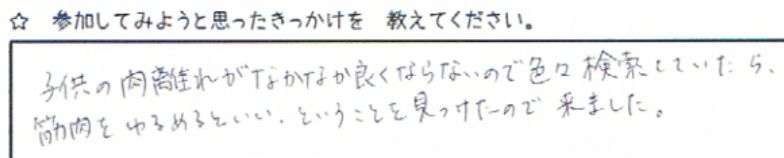 ☆ 参加してみようと思ったきっかけを 教えてください。
子供の肉離れがなかなか良くならないので色々検索していたら、
筋肉をゆるめるといい、ということを見つけたので来ました。